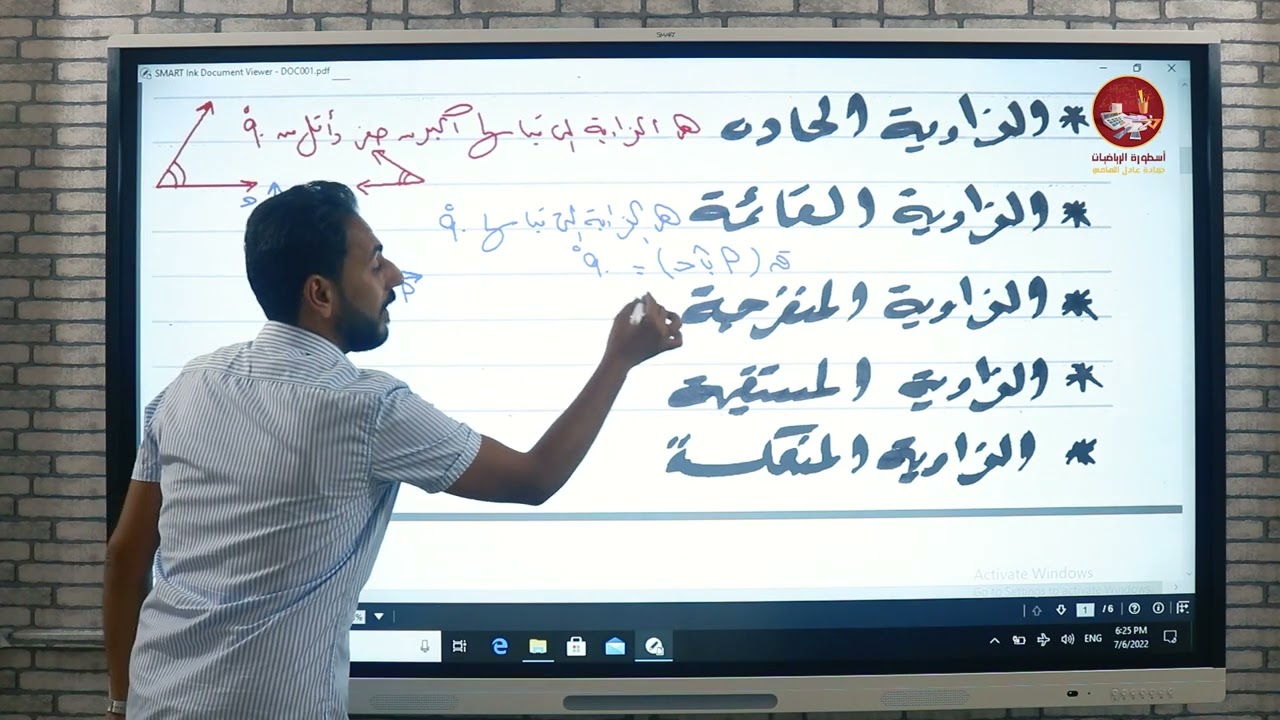 SMART
SMART Ink Document Viewer - DOC001.pdf
* الزاوية الحادة هى الزاوية التى قياسها أكبر من صفر وأقل من ٩٠°
أسطورة الرياضيات
* الزاوية القائمة هى الزاوية التى قياسها ٩٠°
ق (P بَ حـ) = ٩٠°
* الزاوية المنفرجة
* الزاوية المستقيمة
* الزاوية المنعكسة
Activate Windows
Go to Settings to activate Windows
1 / 6
ENG
6:25 PM
7/6/2022